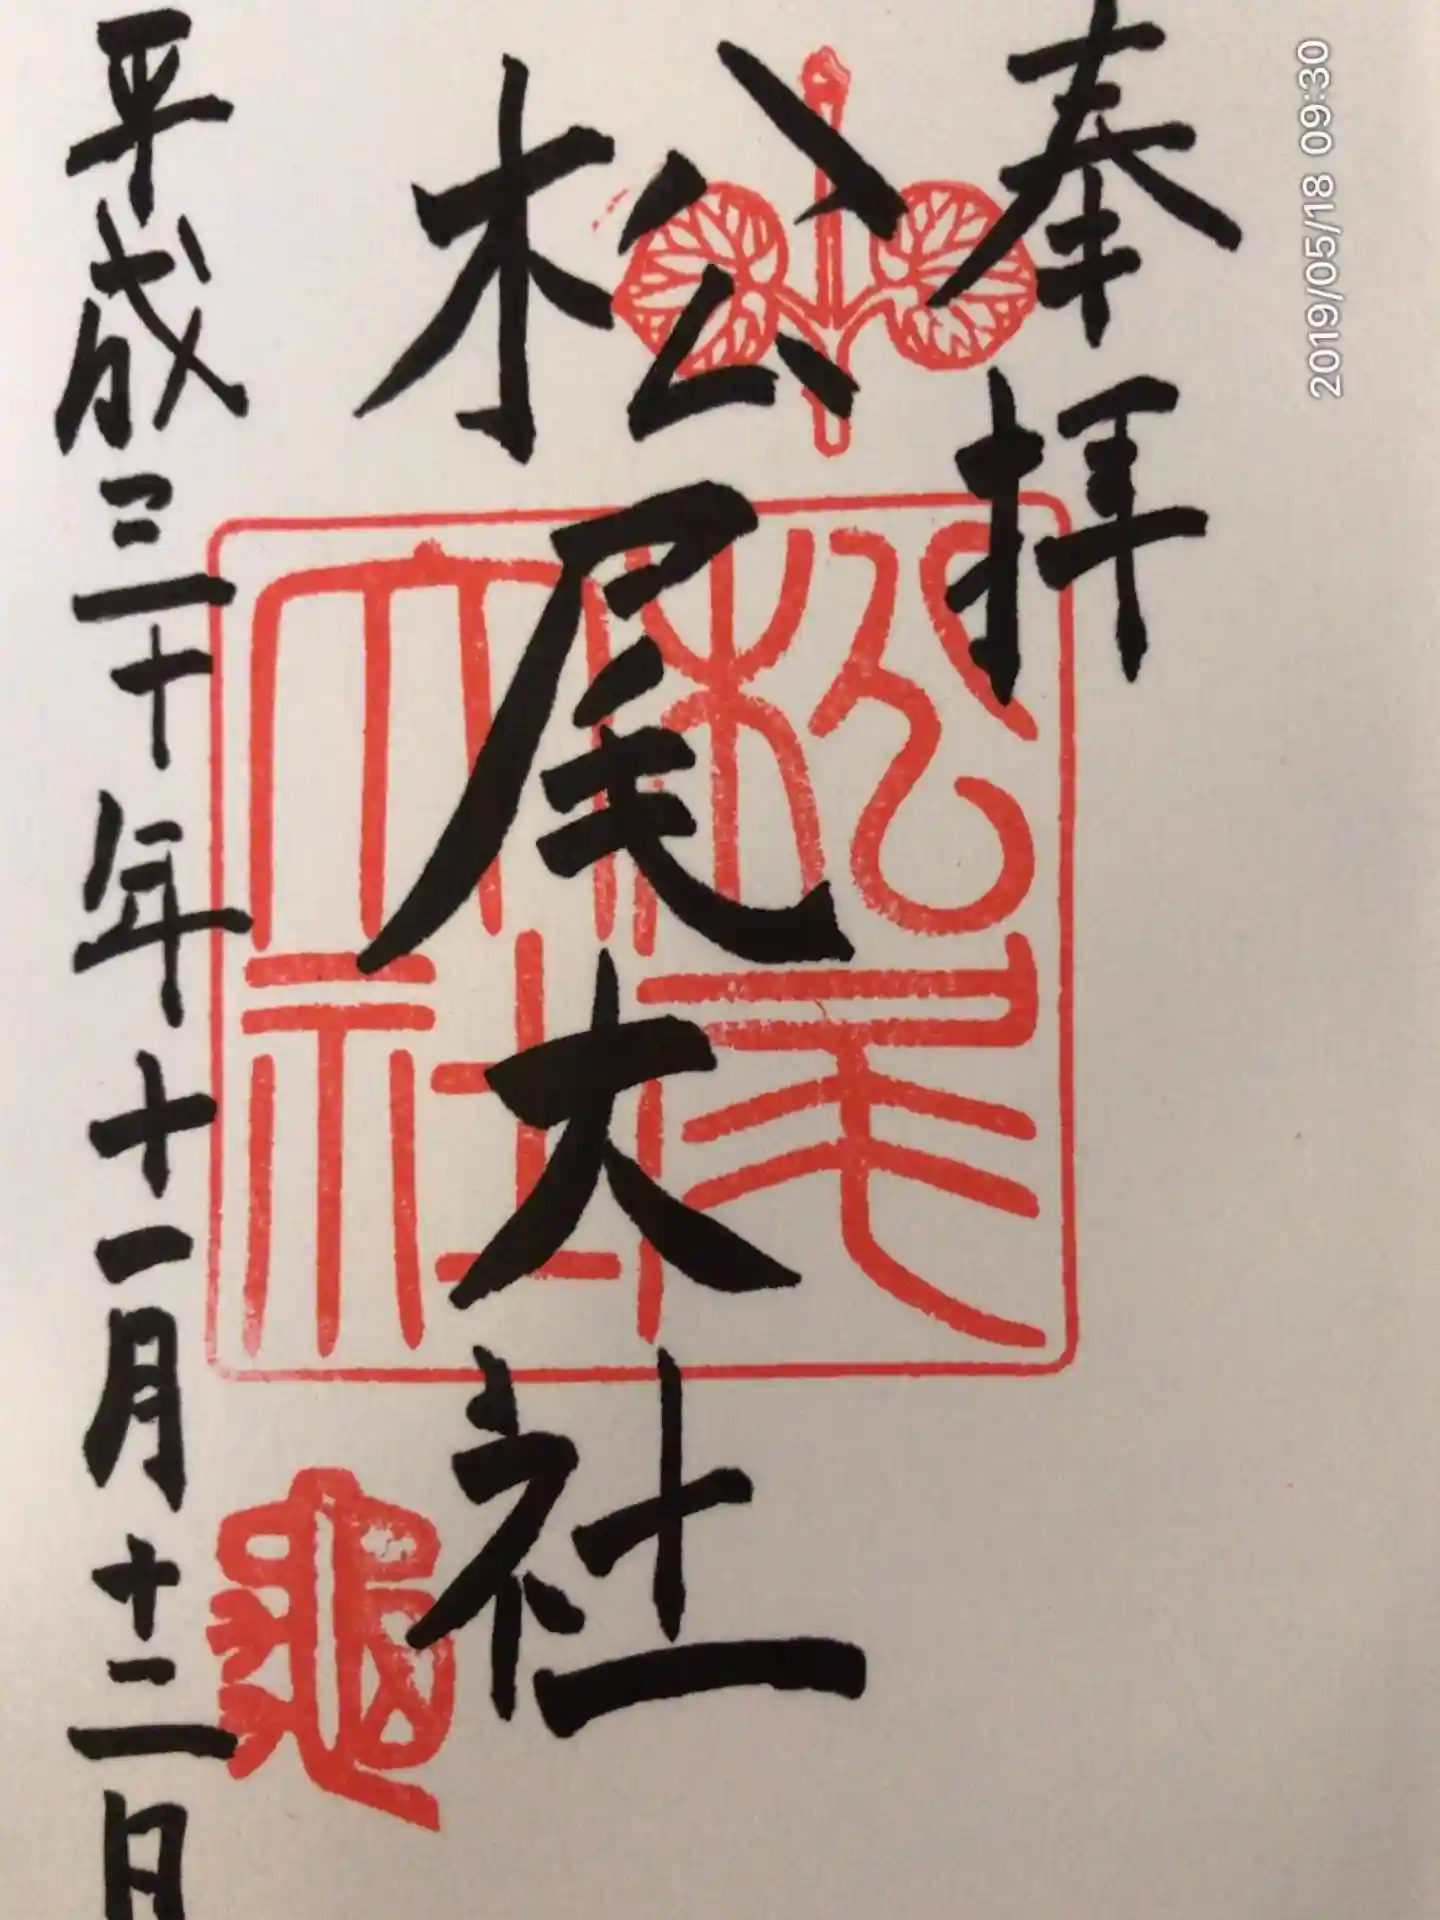 奉拝
松尾大社
平成三十年十一月十二日
松尾大社
龜
2019/05/18 09:30